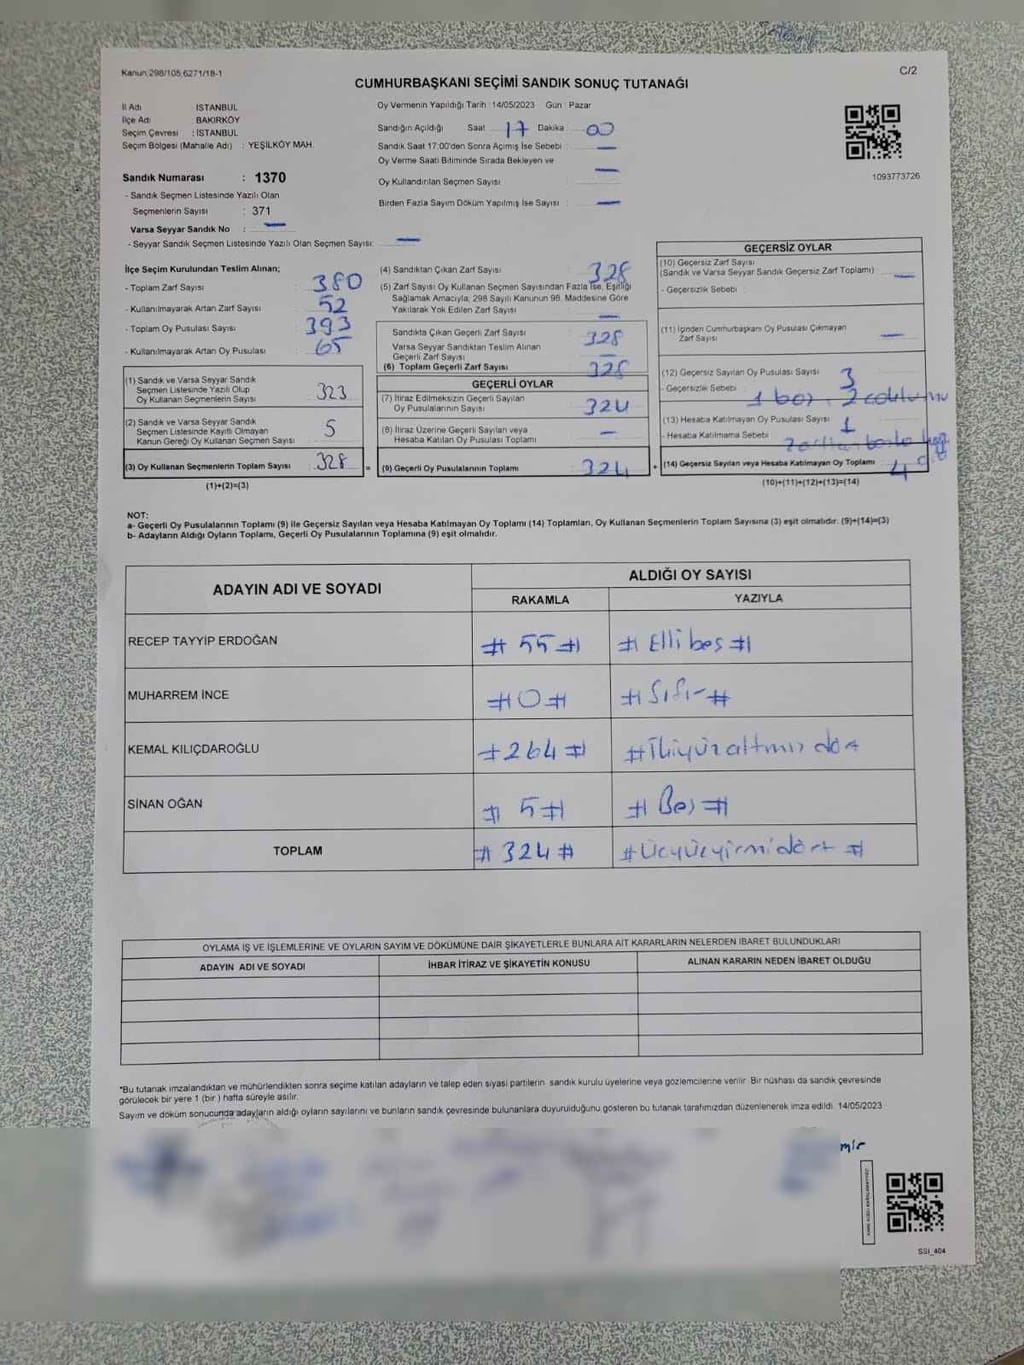 Kanun:298/105,6271/18-1
C/2
CUMHURBAŞKANI SEÇİMİ SANDIK SONUÇ TUTANAĞI
İl Adı : İSTANBUL
İlçe Adı : BAKIRKÖY
Seçim Çevresi : İSTANBUL
Seçim Bölgesi (Mahalle Adı) : YEŞİLKÖY MAH.
Oy Vermenin Yapıldığı Tarih :14/05/2023 Gün : Pazar
Sandığın Açıldığı Saat 17 Dakika 00
Sandık Saat 17.00'den Sonra Açımış İse Sebebi : —
Oy Verme Saati Bitiminde Sırada Bekleyen ve
Oy Kullandırılan Seçmen Sayısı —
Birden Fazla Sayım Döküm Yapılmış İse Sayısı : —
1093773726
Sandık Numarası : 1370
- Sandık Seçmen Listesinde Yazılı Olan
Seçmenlerin Sayısı : 371
Varsa Seyyar Sandık No : —
- Seyyar Sandık Seçmen Listesinde Yazılı Olan Seçmen Sayısı: —
İlçe Seçim Kurulundan Teslim Alınan;
- Toplam Zarf Sayısı : 380
- Kullanılmayarak Artan Zarf Sayısı : 52
- Toplam Oy Pusulası Sayısı : 393
- Kullanılmayarak Artan Oy Pusulası : 65
(1) Sandık ve Varsa Seyyar Sandık
Seçmen Listesinde Yazılı Olup
Oy Kullanan Seçmenlerin Sayısı 323
(2) Sandık ve Varsa Seyyar Sandık
Seçmen Listesinde Kayıtlı Olmayan
Kanun Gereği Oy Kullanan Seçmen Sayısı 5
(3) Oy Kullanan Seçmenlerin Toplam Sayısı 328 =
(1)+(2)=(3)
(4) Sandıktan Çıkan Zarf Sayısı 328
(5) Zarf Sayısı Oy Kullanan Seçmen Sayısından Fazla İse, Eşitliği
Sağlamak Amacıyla; 298 Sayılı Kanunun 98. Maddesine Göre
Yakılarak Yok Edilen Zarf Sayısı —
Sandıkta Çıkan Geçerli Zarf Sayısı 328
Varsa Seyyar Sandıktan Teslim Alınan
Geçerli Zarf Sayısı —
(6) Toplam Geçerli Zarf Sayısı 328
GEÇERLİ OYLAR
(7) İtiraz Edilmeksizin Geçerli Sayılan
Oy Pusulalarının Sayısı 324
(8) İtiraz Üzerine Geçerli Sayılan veya
Hesaba Katılan Oy Pusulası Toplamı —
(9) Geçerli Oy Pusulalarının Toplamı 324 +
GEÇERSİZ OYLAR
(10) Geçersiz Zarf Sayısı
(Sandık ve Varsa Seyyar Sandık Geçersiz Zarf Toplamı) —
- Geçersizlik Sebebi :
(11) İçinden Cumhurbaşkanı Oy Pusulası Çıkmayan
Zarf Sayısı —
(12) Geçersiz Sayılan Oy Pusulası Sayısı 3
- Geçersizlik Sebebi : 1 boş, 2
(13) Hesaba Katılmayan Oy Pusulası Sayısı 1
- Hesaba Katılmama Sebebi :
(14) Geçersiz Sayılan veya Hesaba Katılmayan Oy Toplamı 4
(10)+(11)+(12)+(13)=(14)
NOT:
a- Geçerli Oy Pusulalarının Toplamı (9) ile Geçersiz Sayılan veya Hesaba Katılmayan Oy Toplamı (14) Toplamları, Oy Kullanan Seçmenlerin Toplam Sayısına (3) eşit olmalıdır. (9)+(14)=(3)
b- Adayların Aldığı Oyların Toplamı, Geçerli Oy Pusulalarının Toplamına (9) eşit olmalıdır.
ADAYIN ADI VE SOYADI
ALDIĞI OY SAYISI
RAKAMLA YAZIYLA
RECEP TAYYİP ERDOĞAN # 55 # # Elli beş #
MUHARREM İNCE # 0 # # Sıfır #
KEMAL KILIÇDAROĞLU # 264 # # İkiyüzaltmış dört
SİNAN OĞAN # 5 # # Beş #
TOPLAM # 324 # # Üçyüzyirmidört #
OYLAMA İŞ VE İŞLEMLERİNE VE OYLARIN SAYIM VE DÖKÜMÜNE DAİR ŞİKAYETLERLE BUNLARA AİT KARARLARIN NELERDEN İBARET BULUNDUKLARI
ADAYIN ADI VE SOYADI İHBAR İTİRAZ VE ŞİKAYETİN KONUSU ALINAN KARARIN NEDEN İBARET OLDUĞU
*Bu tutanak imzalandıktan ve mühürlendikten sonra seçime katılan adayların ve talep eden siyasi partilerin sandık kurulu üyelerine veya gözlemcilerine verilir. Bir nüshası da sandık çevresinde
görülecek bir yere 1 (bir ) hafta süreyle asılır.
Sayım ve döküm sonucunda adayların aldığı oyların sayılarını ve bunların sandık çevresinde bulunanlara duyurulduğunu gösteren bu tutanak tarafımızdan düzenlenerek imza edildi. 14/05/2023
SSI_404